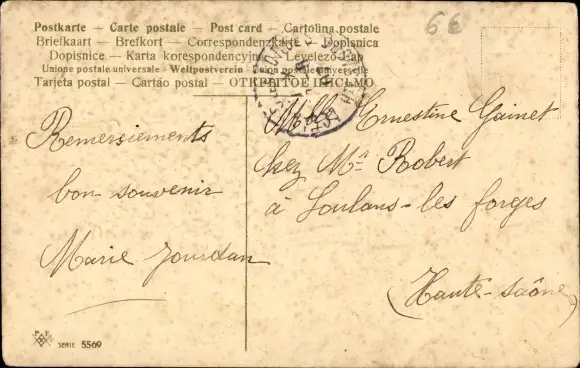 Postkarte — Carte postale — Post card — Cartolina postale
Briefkaart — Brefkort — Correspondenzkarte — Dopisnica
Dopisnice — Karta korespondencyjna — Levelező-Lap
Unione postale universale - Weltpostverein - Union postale universelle
Tarjeta postal — Cartão postal — ОТКРЫТОЕ ПИСЬМО
6 €
Remersiements
bon souvenir
Marie Jourdan
Mlle Ernestine Gainet
chez Mr Robert
à Loulans-les forges
(Haute-Saône)
P.F.
SERIE 5569